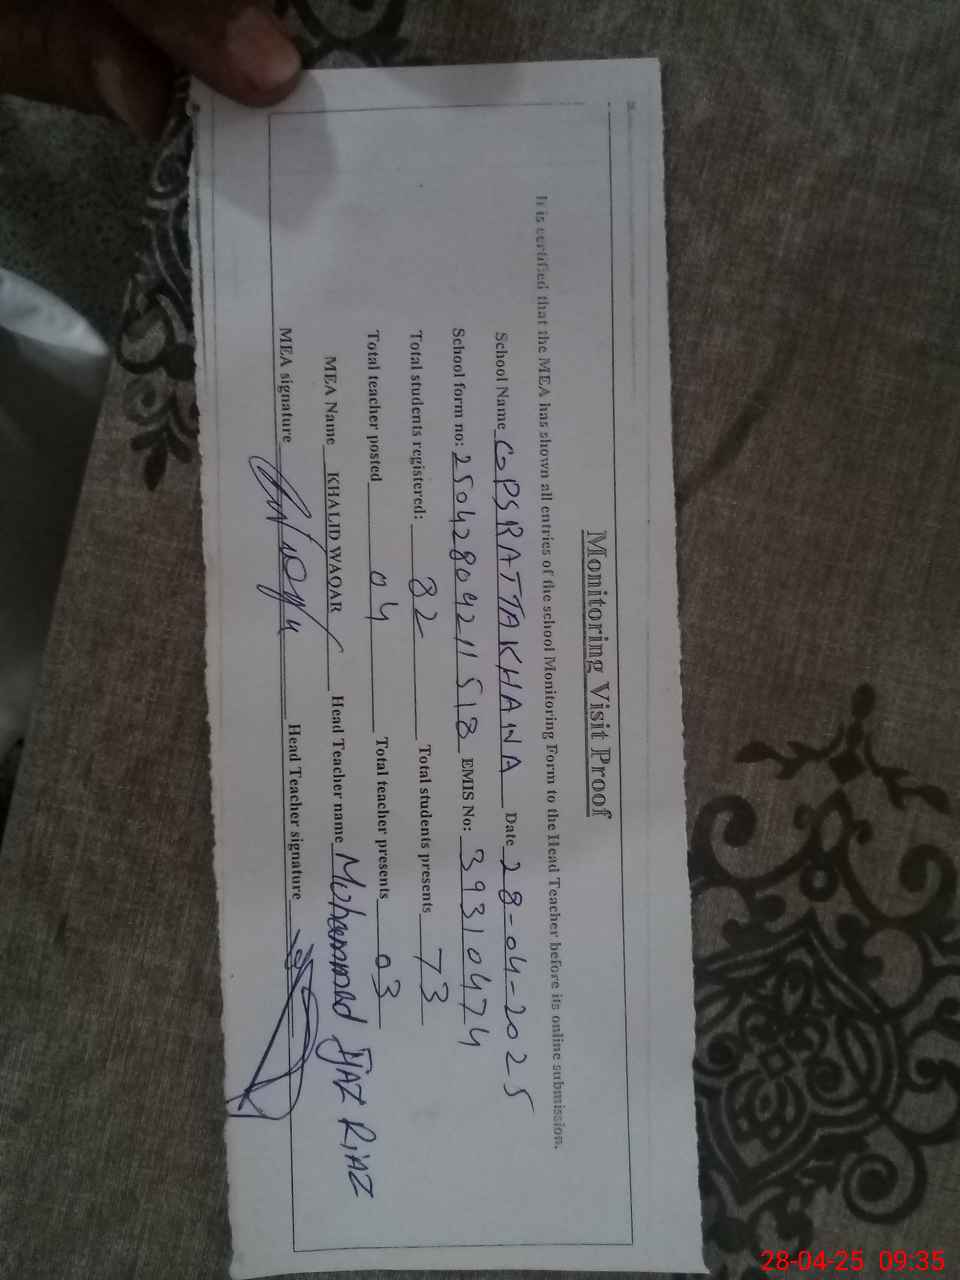 Monitoring Visit Proof
It is certified that the MEA has shown all entries of the school Monitoring Form to the Head Teacher before its online submission.
School Name GPS RATTA KHANA Date 28-04-2025
School form no: 25042804211518 EMIS No: 39310474
Total students registered: 82 Total students presents 73
Total teacher posted 04 Total teacher presents 03
MEA Name KHALID WAQAR Head Teacher name Muhammad IJAZ RIAZ
MEA signature Head Teacher signature
28-04-25 09:35